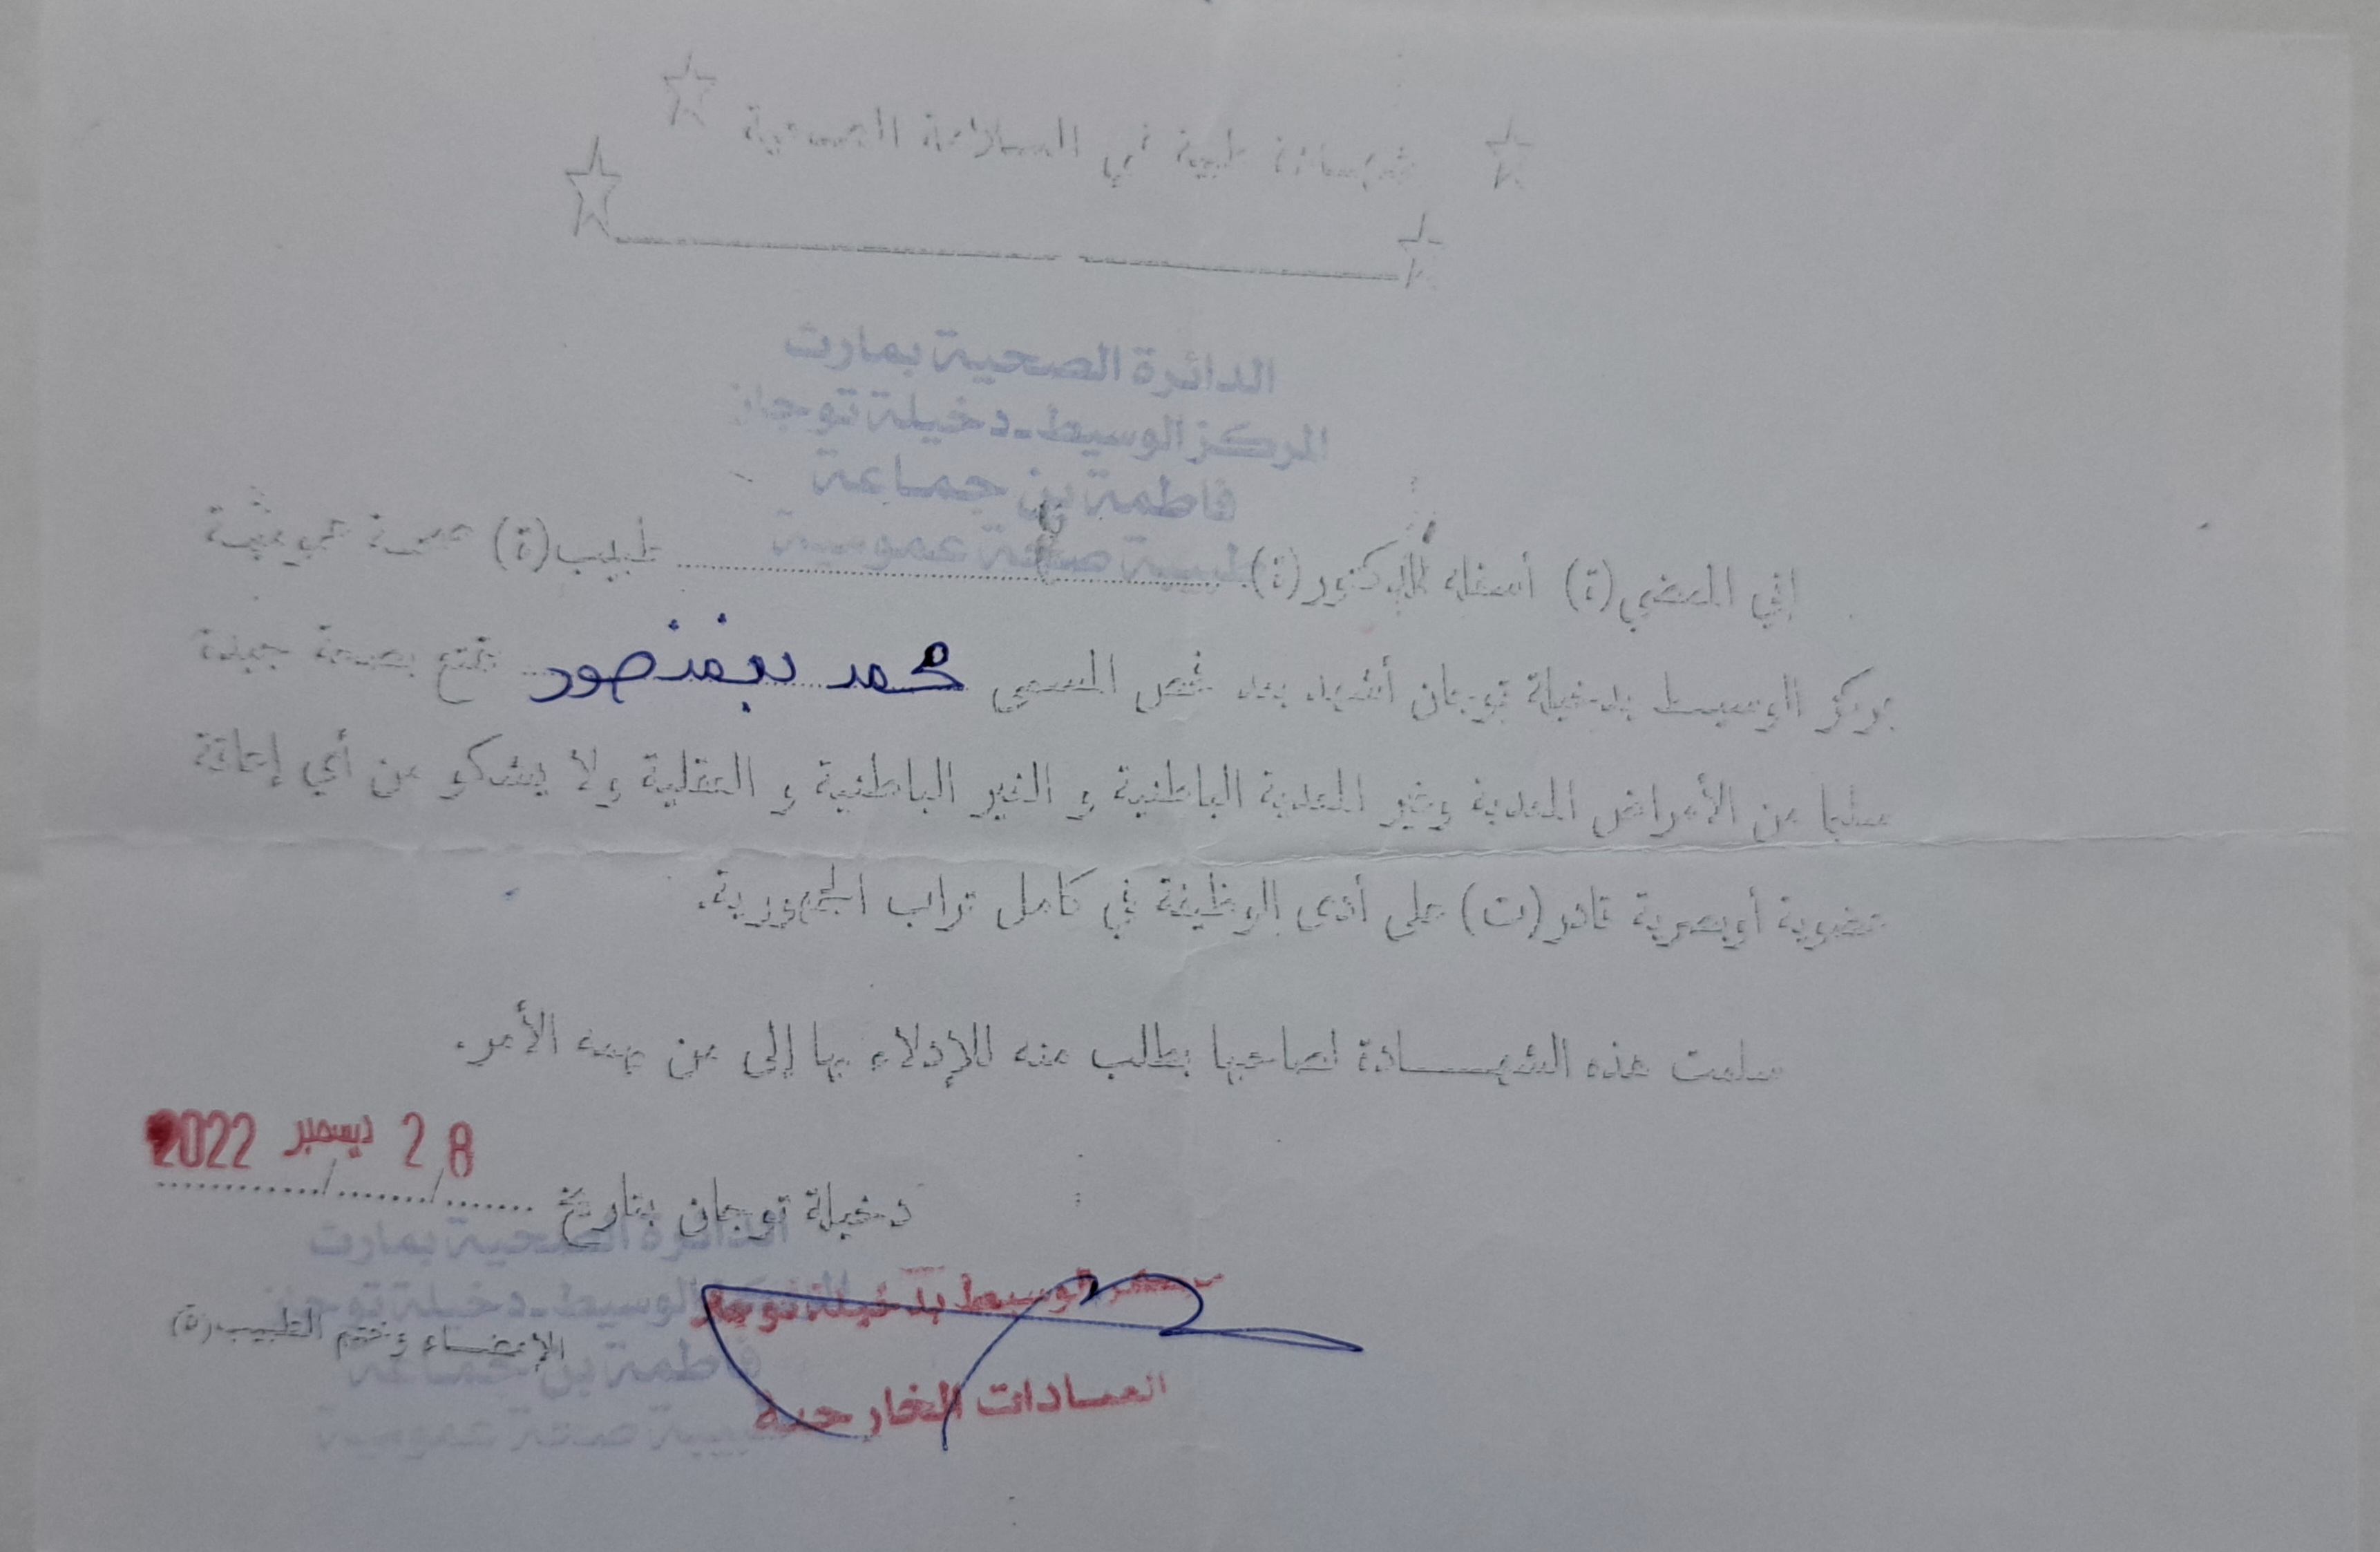 شهادة طبية في السلامة الجسمية
الدائرة الصحية بمارث
المركز الوسيط - دخيلة توجان
فاطمة بن جماعة
طبيبة صحة عمومية
إني الممضي (ة) أسفله الدكتور (ة) طبيب (ة) صحة عمومية
بمركز الوسيط بدخيلة توجان أشهد بعد فحص المسمى محمد بنمنصور يتمتع بصحة جيدة
سليما من الأمراض المعدية وغير المعدية الباطنية و الغير الباطنية و العقلية ولا يشكو من أي إعاقة
عضوية أوبصرية قادر (ت) على أدى الوظيفة في كامل تراب الجمهورية.
سلمت هذه الشهــــادة لصاحبها بطلب منه للإدلاء بها إلى من يهمه الأمر.
28 ديسمبر 2022
دخيلة توجان بتاريخ
الدائرة الصحية بمارث
المركز الوسيط - دخيلة توجان
الإمضـــاء وختم الطبيب (ة)
فاطمة بن جماعة
طبيبة صحة عمومية
مركز الوسيط بدخيلة توجان
العيادات الخارجية